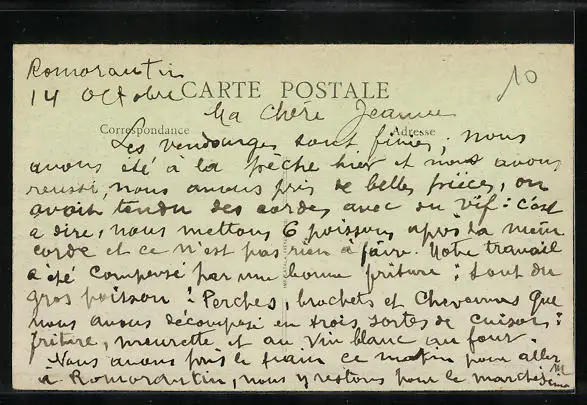 Romorantin
14 Octobre CARTE POSTALE
10
Ma Chère Jeanne
Correspondance Adresse
Les vendanges sont finies, nous
avons été à la pêche hier et nous avons
reussi, nous avons pris de belles pièces, on
avait tendu des cordes avec du vif : c'est
a dire, nous mettons 6 poissons après la même
corde et ce n'est pas rien à faire. Notre travail
a été compensé par une bonne friture : tout du
gros poisson : Perches, brochets et Chevesnes que
nous avons décomposé en trois sortes de cuisson :
friture, meurette et au vin blanc au four.
Nous avons pris le train ce matin pour aller
à Romorantin, nous y restons pour le marché